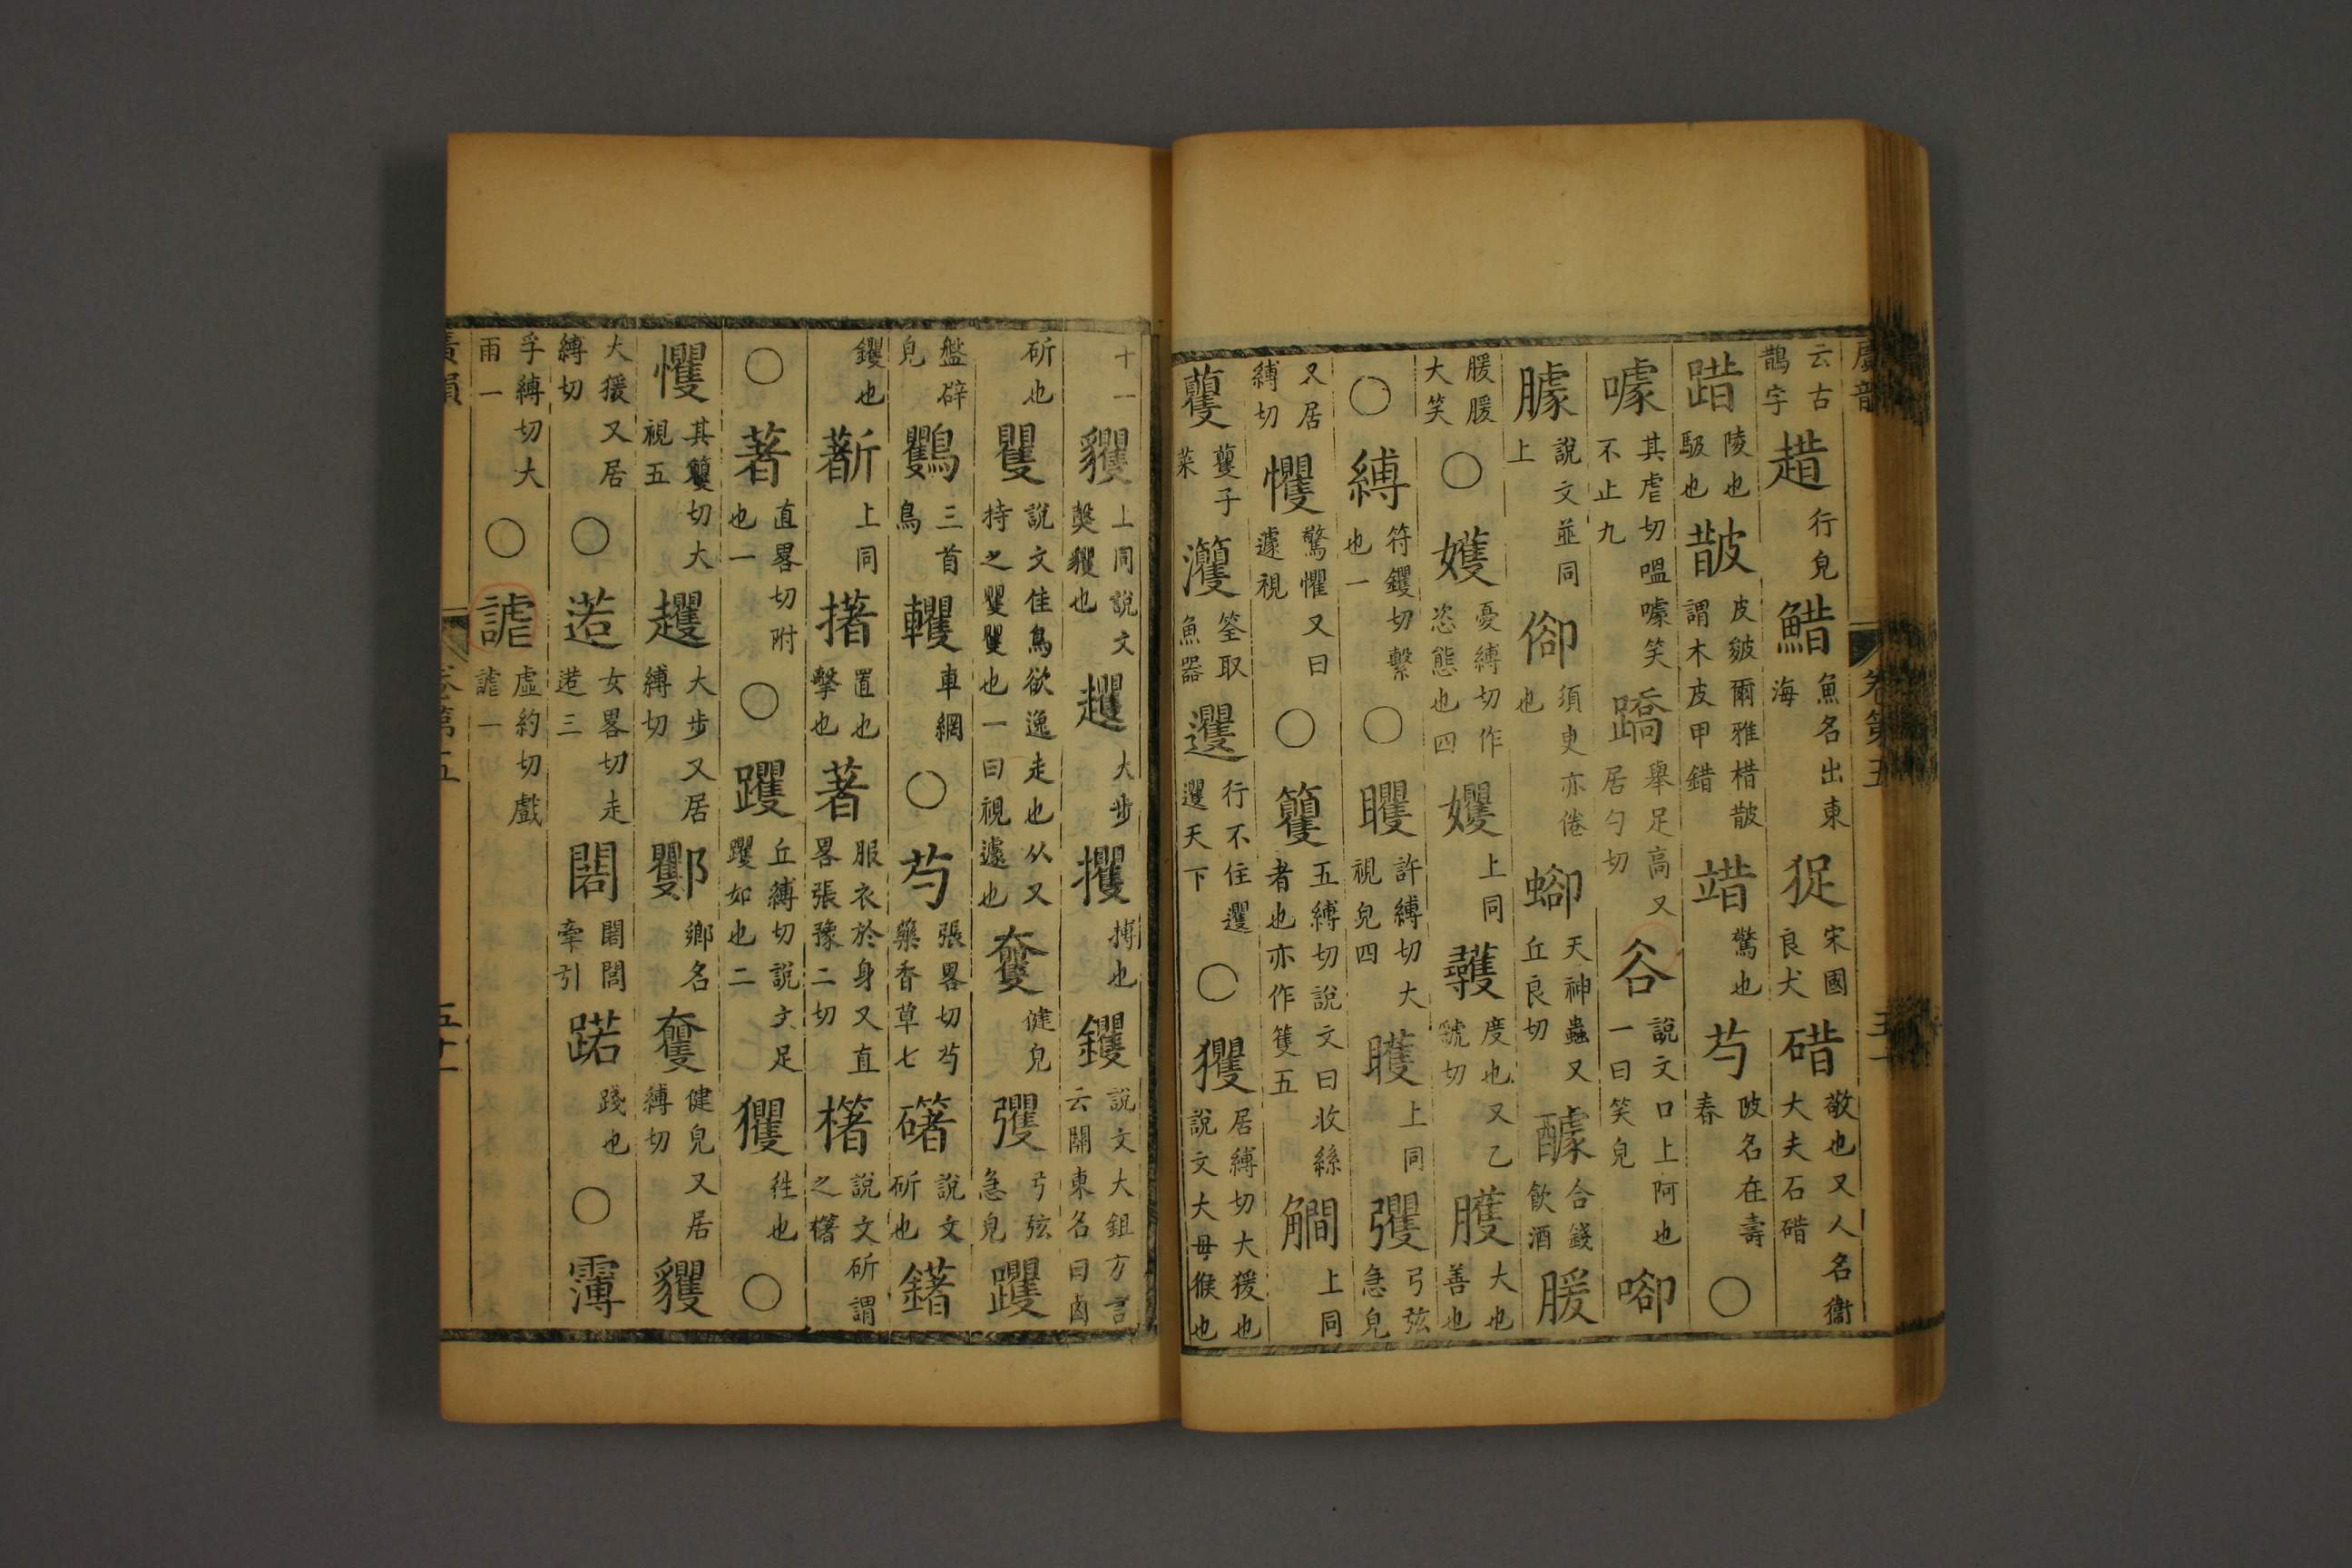 廣韻 卷第五
云古鵲字 趞 行皃 䱜 魚名出東海 㹱 宋國良犬 碏 敬也又人名衞大夫石碏
踖 陵也駁也 皵 皮皴爾雅棤皵謂木皮甲錯 䇎 驚也 芍 陂名在壽春 ○
噱 其虐切嗢噱笑不止九 蹻 舉足高又居勺切 谷 說文口上阿也一曰笑皃 㖼
臄 說文並同上 㕁 須臾亦倦也 天神蟲又丘良切 醵 合錢飲酒
㬉㬉大笑 ○ 嬳 憂縛切作恣態也四 孆 上同 蒦 度也又乙虢切 臒 大也善也
○ 縛 符钁切繫也一 ○ 矆 許縛切大視皃四 上同 彏 弓弦急皃
又居縛切 戄 驚戄又曰遽視 ○ 籰 五縛切說文曰收絲者也亦作篗五 上同
蘡子菜 筌取魚器 行不住 天下 ○ 玃 居縛切大猨也說文大母猴也
十一 貜 上同說文𤡱貜也 趯 大步 攫 搏也 钁 說文大鉏方言云關東名曰鹵
斫也 矍 說文隹鳥欲逸走也从又持之矍矍也一曰視遽也 健皃 彏 弓弦急皃 躩
盤辟皃 三首鳥 車網 ○ 芍 張畧切芍藥香草七 䃴 說文斫也 鐯
钁也 上同 擆 置也擊也 著 服衣於身又直畧張豫二切 櫡 說文斫謂之櫡
○ 著 直畧切附也一 ○ 躩 丘縛切說文足躩如也二 往也 ○
戄 其籰切大視五 大步又居縛切 鄉名 健皃又居縛切 貜
大猨又居縛切 ○ 逽 女畧切走逽三 牽引 踐也 ○ 䨦
孚縛切大雨一 ○ 謔 虛約切戲謔一
廣韻 卷第五 五十一